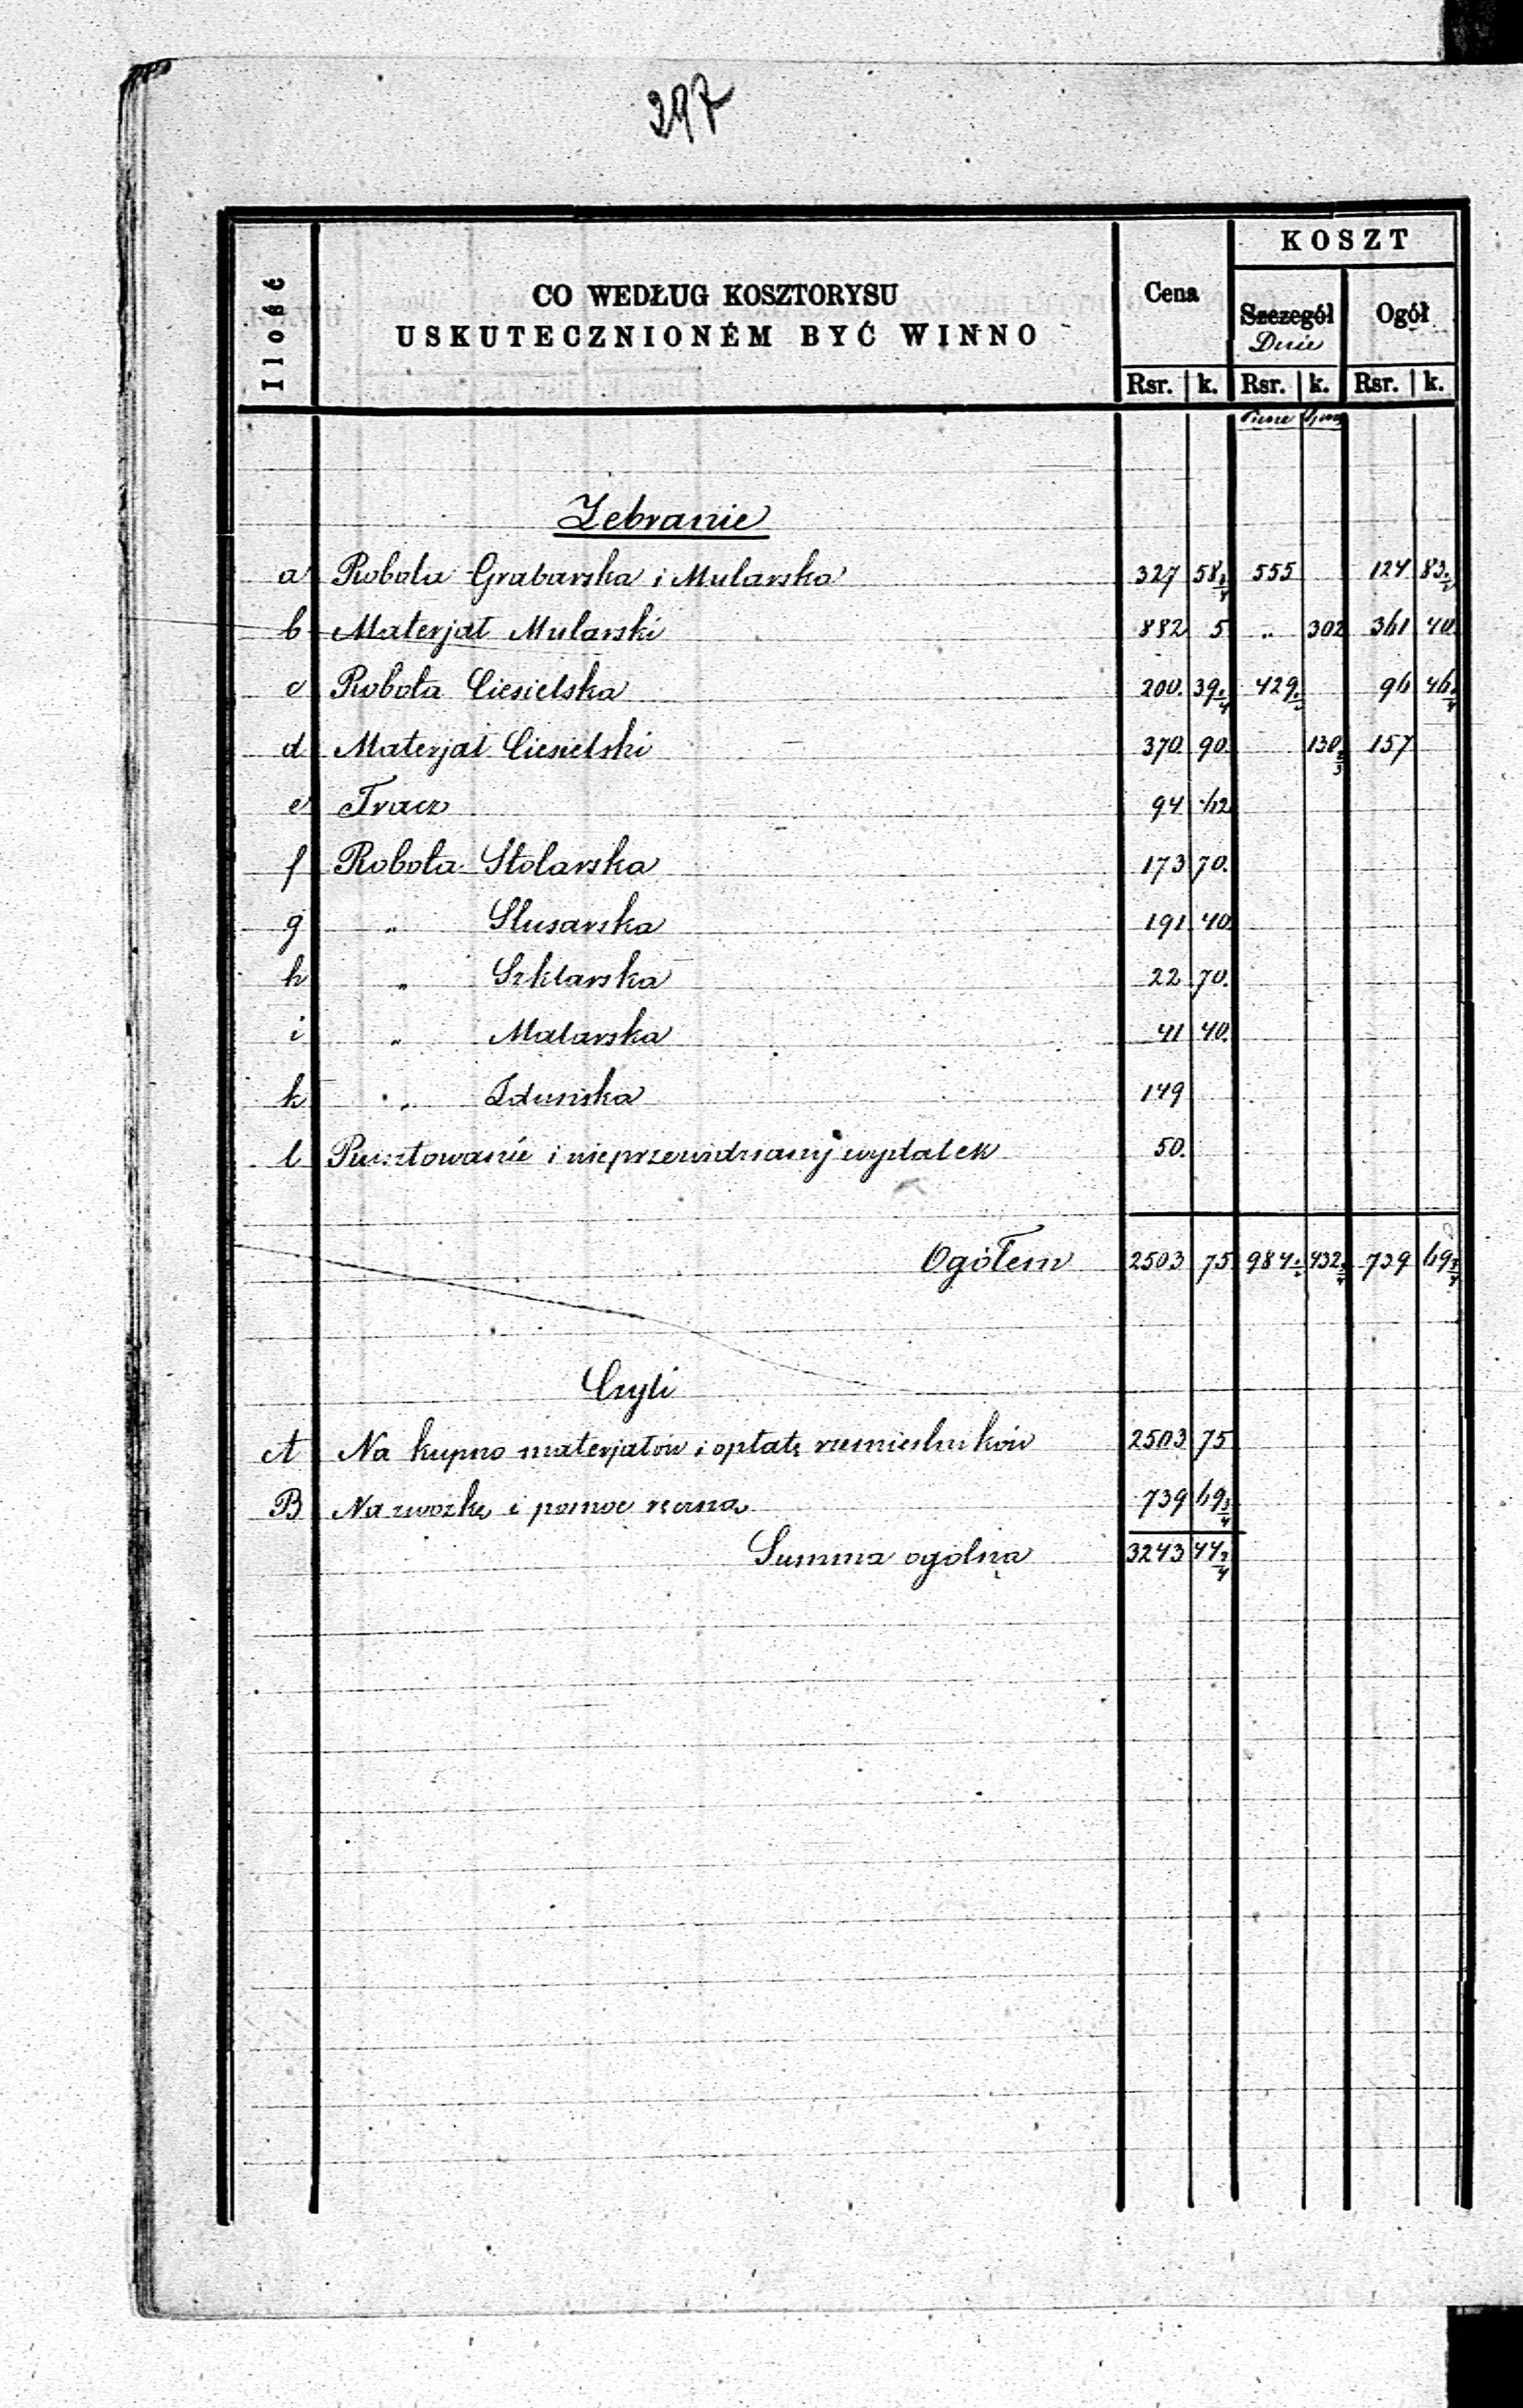 297
Ilość
CO WEDŁUG KOSZTORYSU
USKUTECZNIONÉM BYĆ WINNO
Cena
KOSZT
Szczegół
Dnie
Ogół
Rsr. k. Rsr. k. Rsr. k.
Zebranie
a Robota Grabarska i Mularska 327 58 3/4 555 124 83 1/2
b Materjał Mularski 882 5 " 302 361 40
c Robota Ciesielska 200. 39 1/4 429 1/2 96 46 1/4
d Materjał Ciesielski 370. 90. 130 2/3 157
e Tracz 94
f Robota Stolarska 173 70.
g " Slusarska 191 40
h " Szklarska 22 70.
i " Malarska 41 40.
k " Zduńska 149
l i nieprzewidziany wydatek 50.
Ogółem 2503 75 984 1/2 432 739 69 3/4
Czyli
A Na kupno materjałów i opłatę rzemieslników 2503 75
B Na zwózkę i pomoc ręczną 739 69 3/4
Summa ogólna 3243 44 3/4